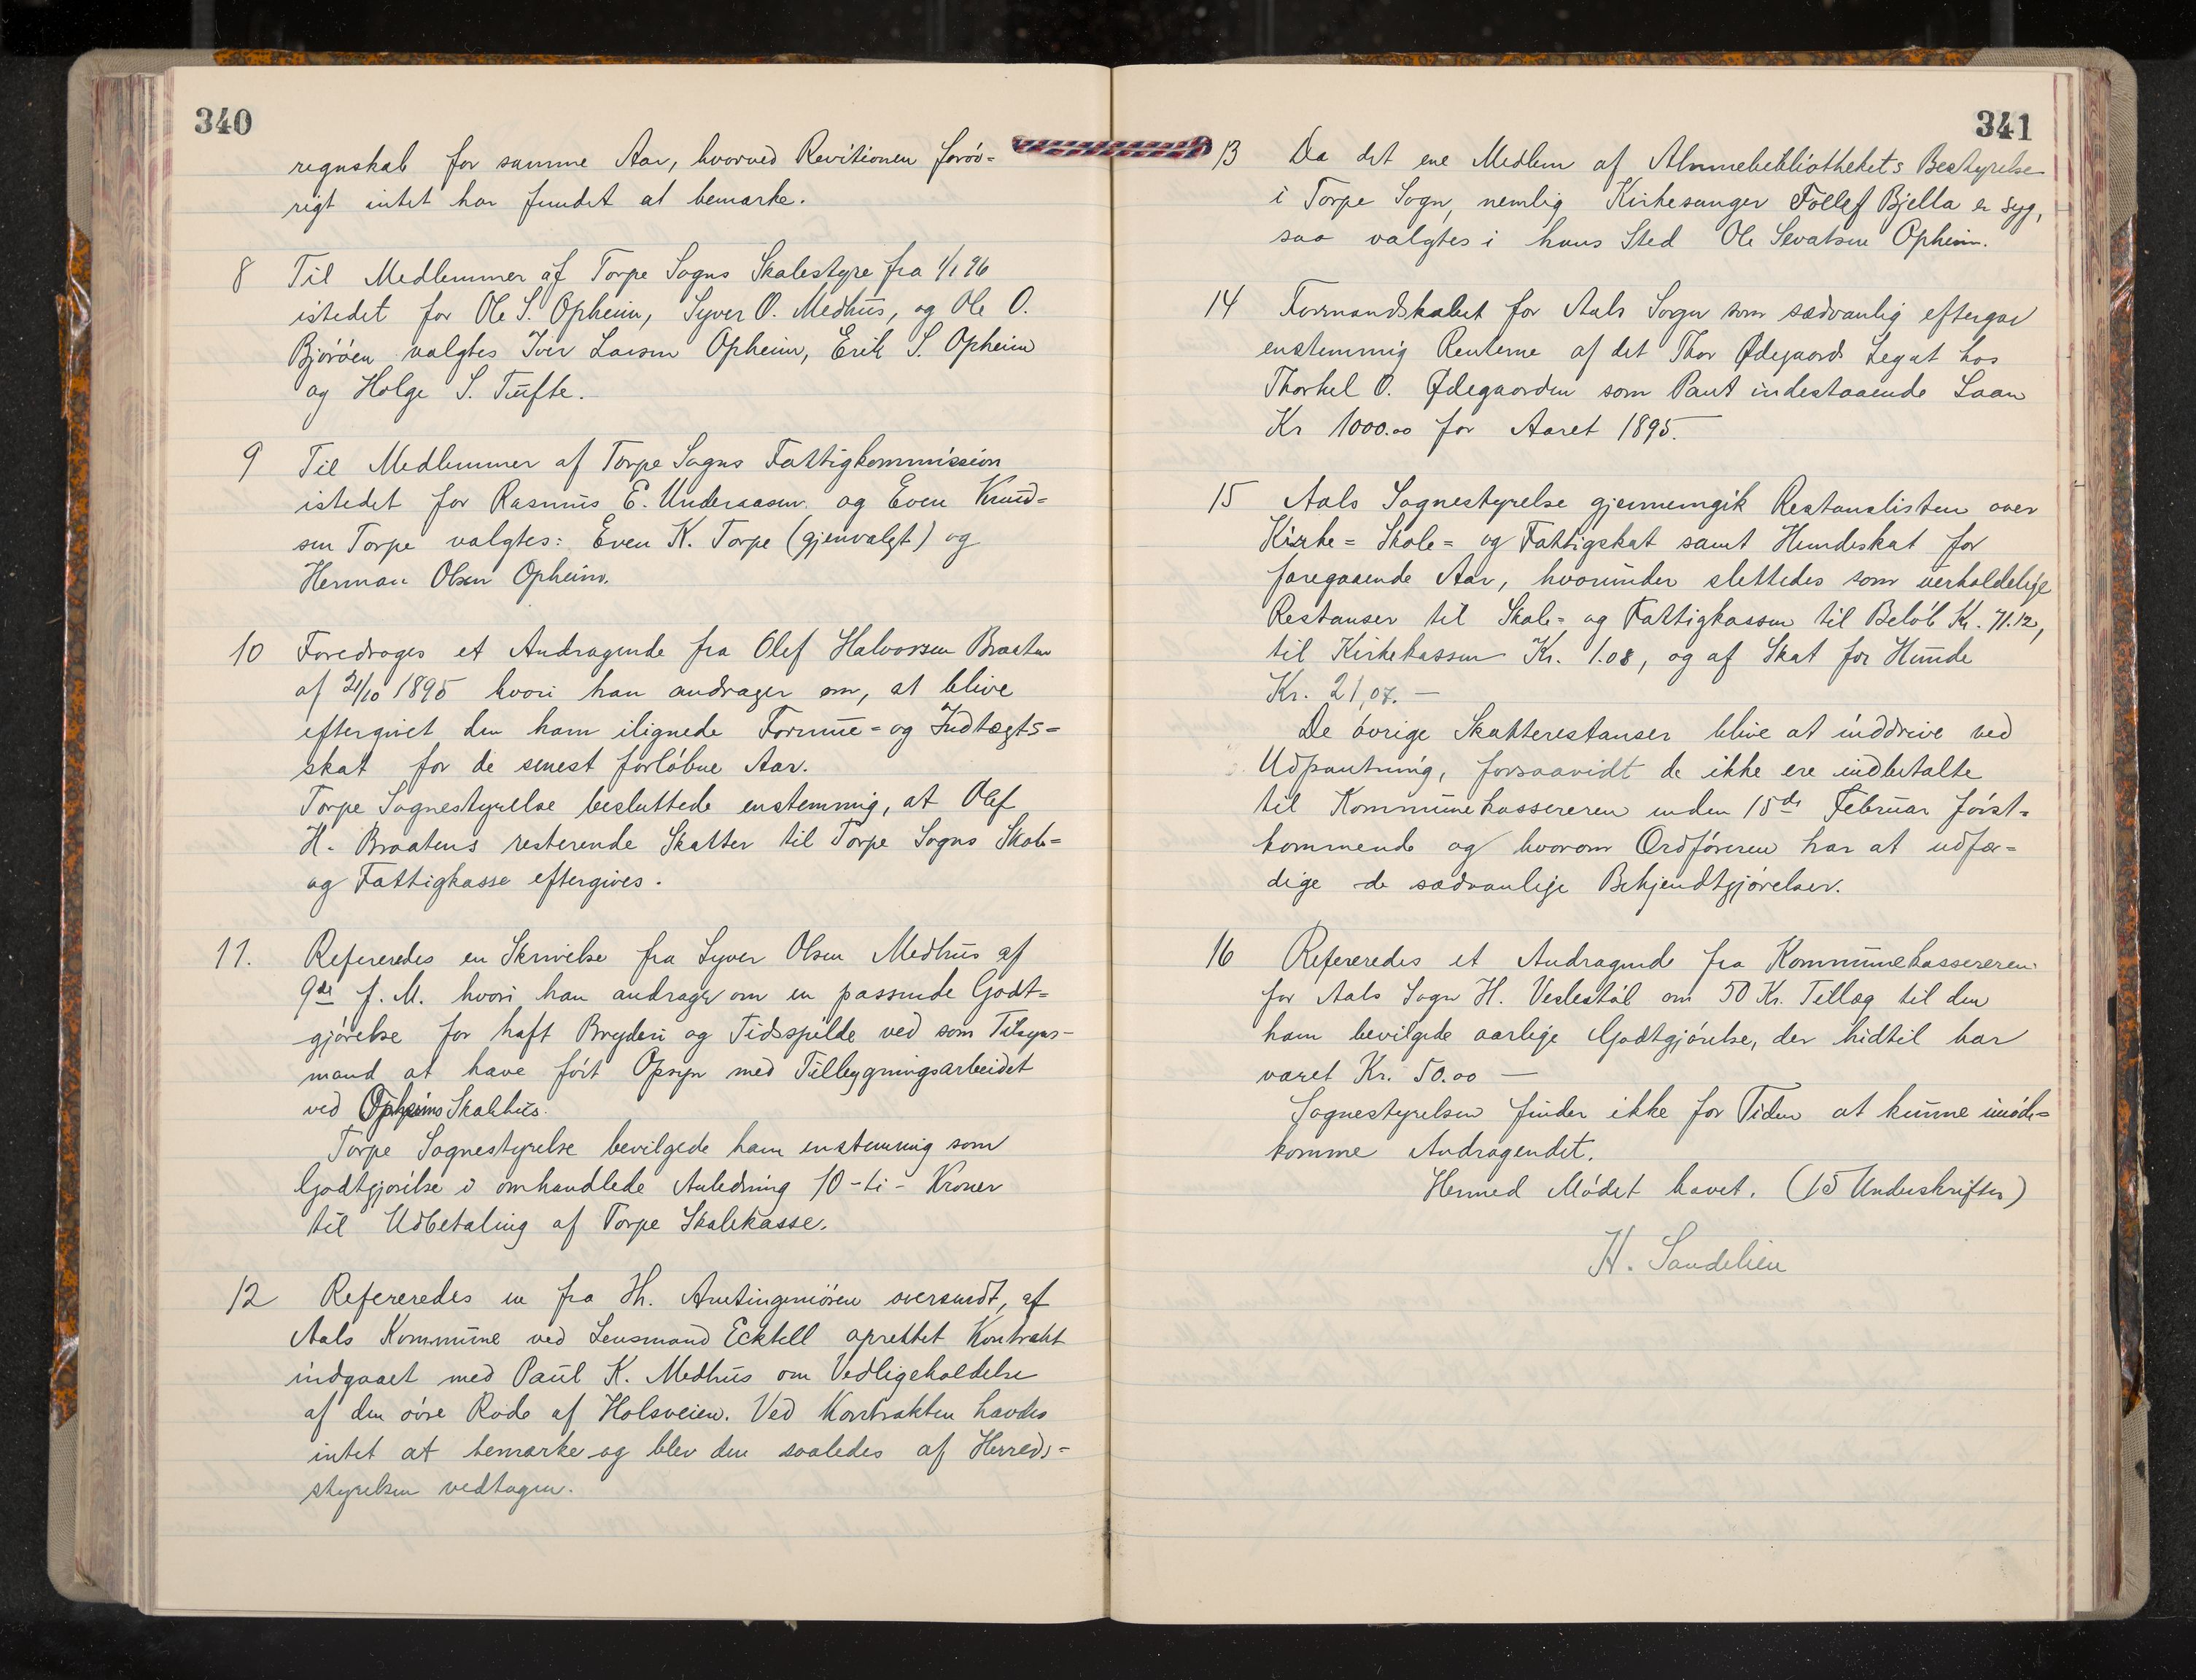 340
regnskab for samme Aar, hvorved Revitionen forøv=
rigt intet har fundet at bemærke.
8 Til Medlemmer af Torpe Sogns Skolestyre fra 1/1 96
istedet for Ole S. Opheim, Syver O. Medhus, og Ole O.
Bjøröen valgtes Iver Larsen Opheim, Erik S. Opheim
og Holge S. Tufte.
9 Til Medlemmer af Torpe Sogns Fattigkommission
istedet for Rasmus E. Underaasen og Even Knud=
sen Torpe valgtes: Even K. Torpe (gjenvalgt) og
Herman Olsen Opheim.
10 Foredroges et Andragende fra Olef Halvorsen Braaten
af 21/10 1895 hvori han andrager om, at blive
eftergivet den ham ilignede Formue= og Indtægts=
skat for de senest forløbne Aar.
Torpe Sognestyrelse besluttede enstemmig, at Olef
H. Braatens resterende Skatter til Torpe Sogns Skole=
og Fattigkasse eftergives.
11. Refereredes en Skrivelse fra Syver Olsen Medhus af
9de f. M. hvori han andrager om en passende Godt=
gjørelse for haft Bryderi og Tidsspilde ved som Tilsyns-
mand at have ført Opsyn med Tilbygningsarbeidet
ved Opheims Skolehus.
Torpe Sognestyrelse bevilgede ham enstemmig som
Godtgjørelse i omhandlede Anledning 10 - ti - Kroner
til Udbetaling af Torpe Skolekasse.
12 Refereredes en fra Hr. Amtingeniøren oversendt, af
Aals Kommune ved Lensmand Ecktell oprettet Kontrakt
indgaaet med Paul K. Medhus om Vedligeholdelse
af den øvre Rode af Holsveien. Ved Kontrakten havdes
intet at bemærke og blev den saaledes af Herreds=
styrelsen vedtagen.
341
13 Da det ene Medlem af Almuebibliothekets Bestyrelse
i Torpe Sogn, nemlig Kirkesanger Tollef Bjella er syg,
saa valgtes i hans Sted Ole Sevatsen Opheim.
14 Formandskabet for Aals Sogn som sædvanlig eftergav
enstemmig Renterne af det Thor Ødegaards Legat hos
Thorkel O. Ødegaarden som Pant indestaaende Laan
Kr 1000.00 for Aaret 1895.
15 Aals Sognestyrelse gjennemgik Restanselisten over
Kirke= Skole= og Fattigskat samt Hundeskat for
foregaaende Aar, hvorunder slettedes som uerholdelige
Restanser til Skole= og Fattigkassen til Beløb Kr. 71.12,
til Kirkekassen Kr. 1.08, og af Skat for Hunde
Kr. 21,07. —
De øvrige Skatterestanser blive at inddrive ved
Udpantning, forsaavidt de ikke ere indbetalte
til Kommunekassereren inden 15de Februar først=
kommende og hvorom Ordføreren har at udfær=
dige de sædvanlige Bekjendtgjørelser.
16 Refereredes et Andragende fra Kommunekassereren
for Aals Sogn H. Veslestøl om 50 Kr. Tillæg til den
ham bevilgede aarlige Godtgjørelse, der hidtil har
været Kr. 50.00 —
Sognestyrelsen finder ikke for Tiden at kunne imøde=
komme Andragendet.
Hermed Mødet hævet. (15 Underskrifter)
H. Sandelien